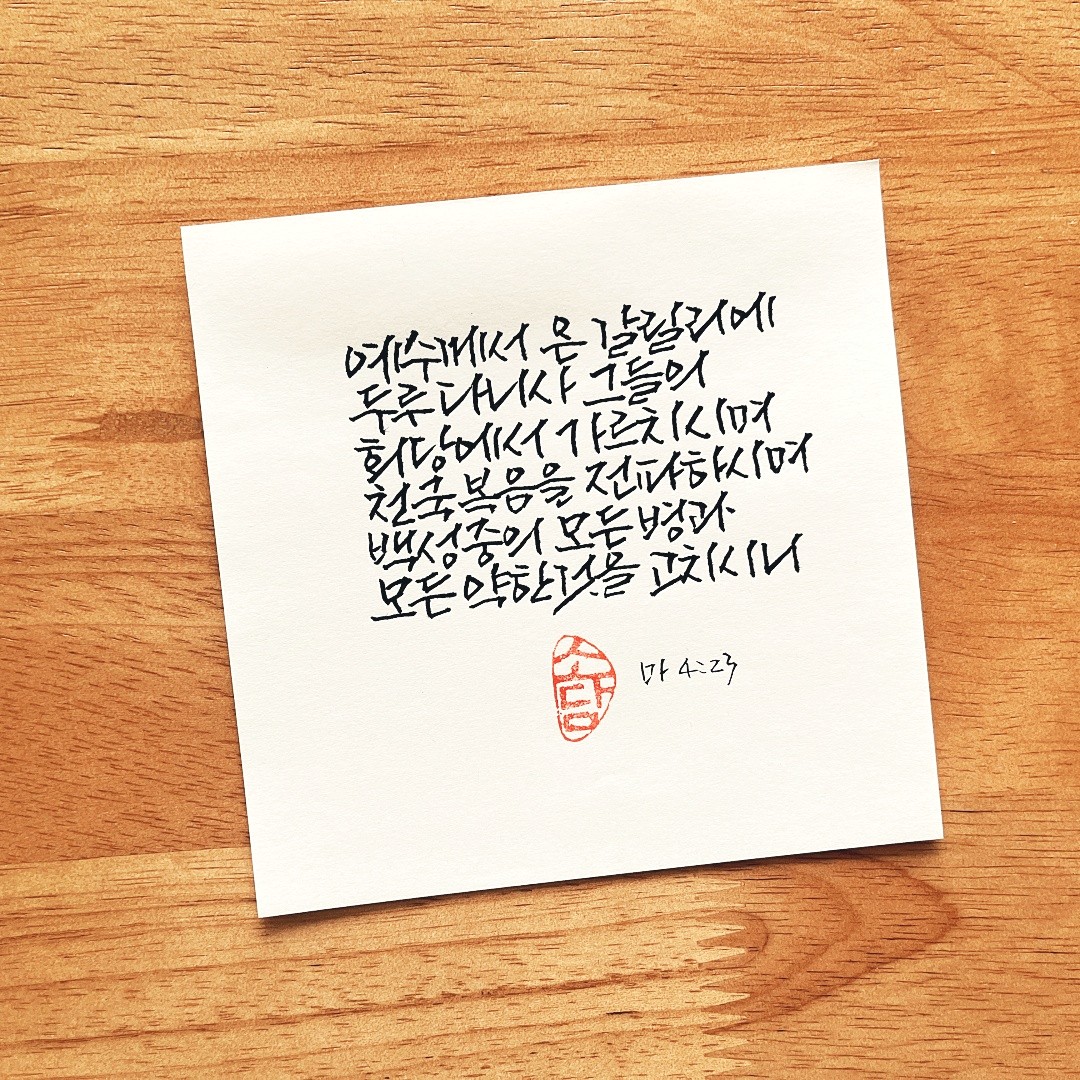 예수께서 온 갈릴리에
두루 다니사 그들의
회당에서 가르치시며
천국 복음을 전파하시며
백성 중의 모든 병과
모든 약한 것을 고치시니
소담
마 4:23